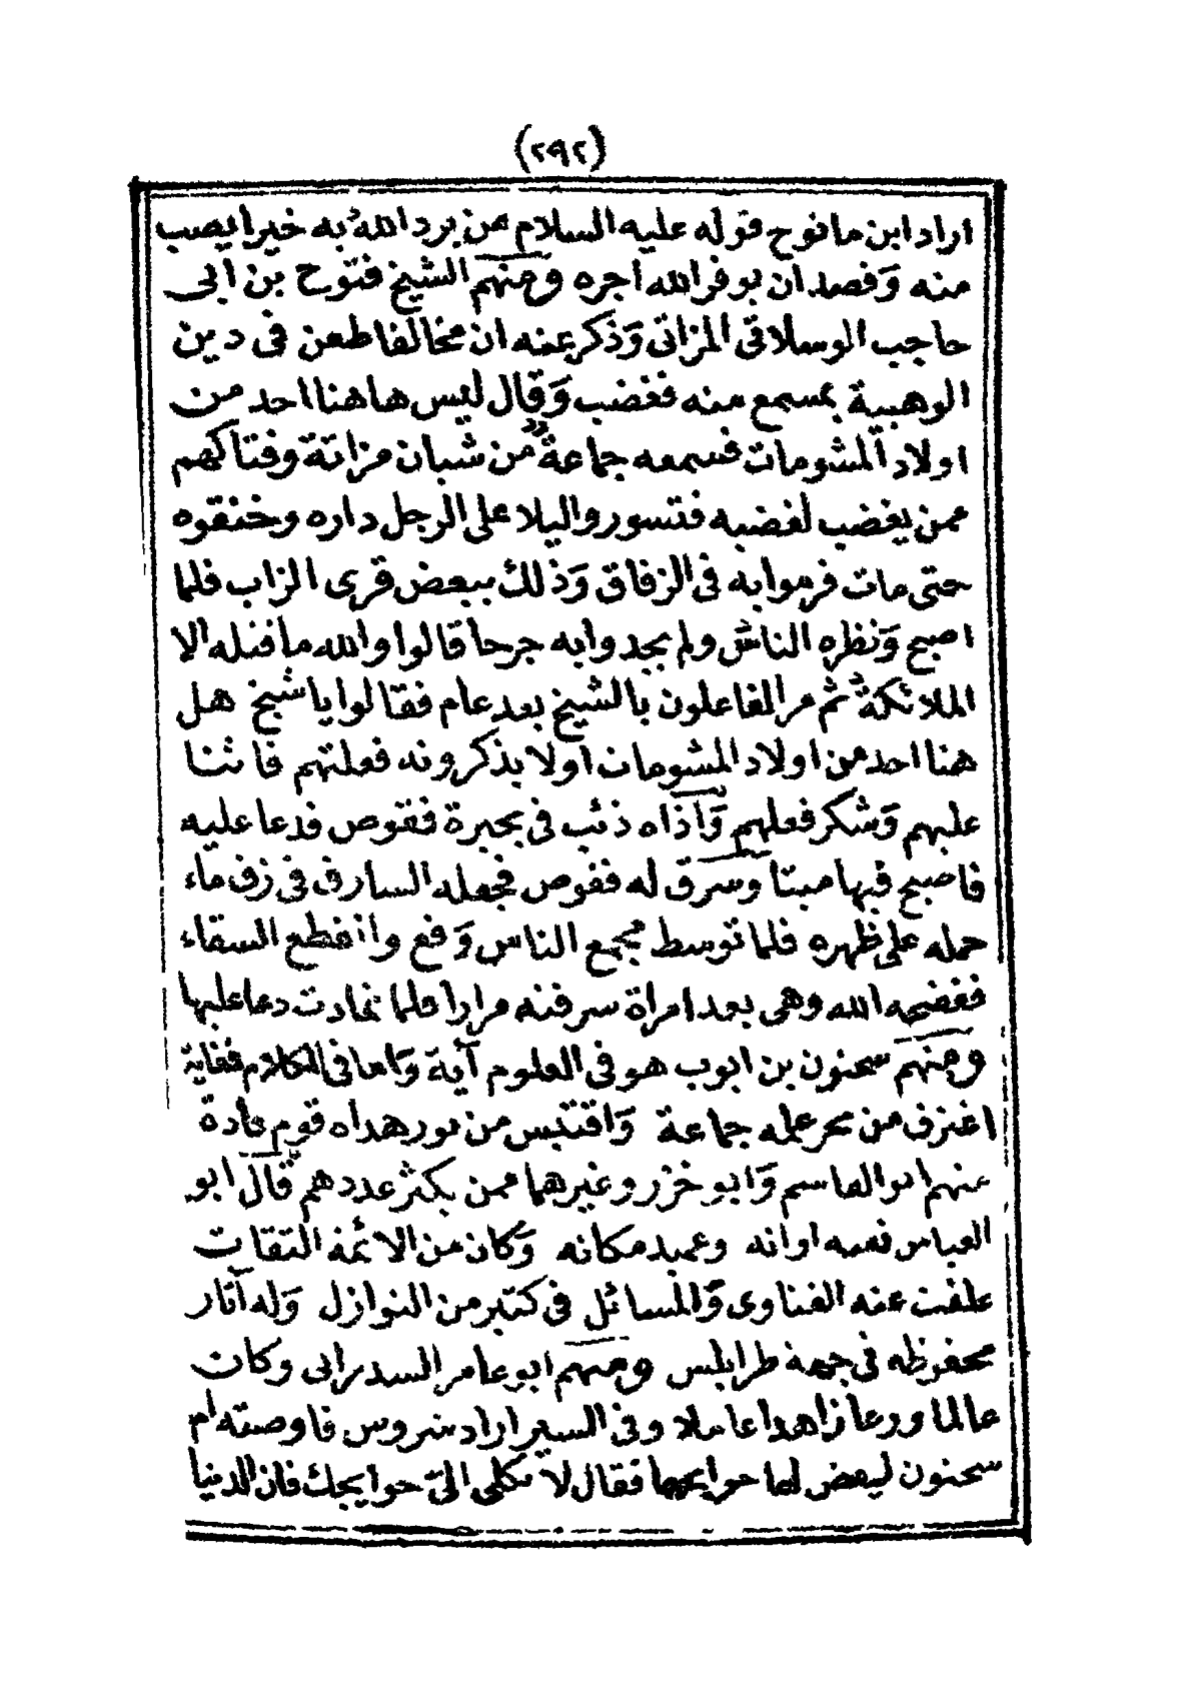 (٢٩٢)
اراد ابن مانوح قوله عليه السلام من يرد الله به خيرا يصب
منه وقصد ان يوفر الله اجره ومنهم الشيخ فتوح بن ابى
حاجب الوسلاتى المزاتى وذكر عنه ان مخالفا طعن فى دين
الوهبية بمسمع منه فغضب وقال ليس هاهنا احد من
اولاد المشومات فسمعه جماعة من شبان مزاتة وفتاكهم
ممن يغضب لغضبه فتسوروا ليلا على الرجل داره وخنقوه
حتى مات فرموا به فى الزقاق وذلك ببعض قرى الزاب فلما
اصبح ونظره الناس ولم يجدوا به جرحا قالوا والله ما قتله الا
الملائكة ثم مر الفاعلون بالشيخ بعد عام فقالوا يا شيخ هل
هنا احد من اولاد المشومات اولا يذكرونه فعلتهم فاثنا
عليهم وشكر فعلهم وآذاه ذئب فى بحيرة فقوص فدعا عليه
فاصبح فيها ميتا وسرق له فقوص فجعله السارق فى زق ماء
حمله على ظهره فلما توسط مجمع الناس وقع وانقطع السقاء
ففضحه الله وهى بعد امراة سرقته مرارا فلما تمادت دعا عليها
ومنهم سحنون بن ايوب هو فى العلوم آية واما فى الكلام فغاية
اغترف من بحر علمه جماعة واقتبس من نور هداه قوم قادة
منهم ابو القاسم وابو خزر وغيرهما ممن يكثر عددهم قال ابو
العباس فقيه اوانه وعميد مكانه وكان من الائمة الثقات
علقت عنه الفتاوى والمسائل فى كتير من النوازل وله آثار
محفوظه فى جهة طرابلس ومنهم ابو عامر السدراتى وكان
عالما ورعا زاهدا عاملا وفى السير اراد شروس فاوصته ام
سحنون لبعض لها حوايجها فقال لا تكلى الىّ حوايجك فان الدنيا